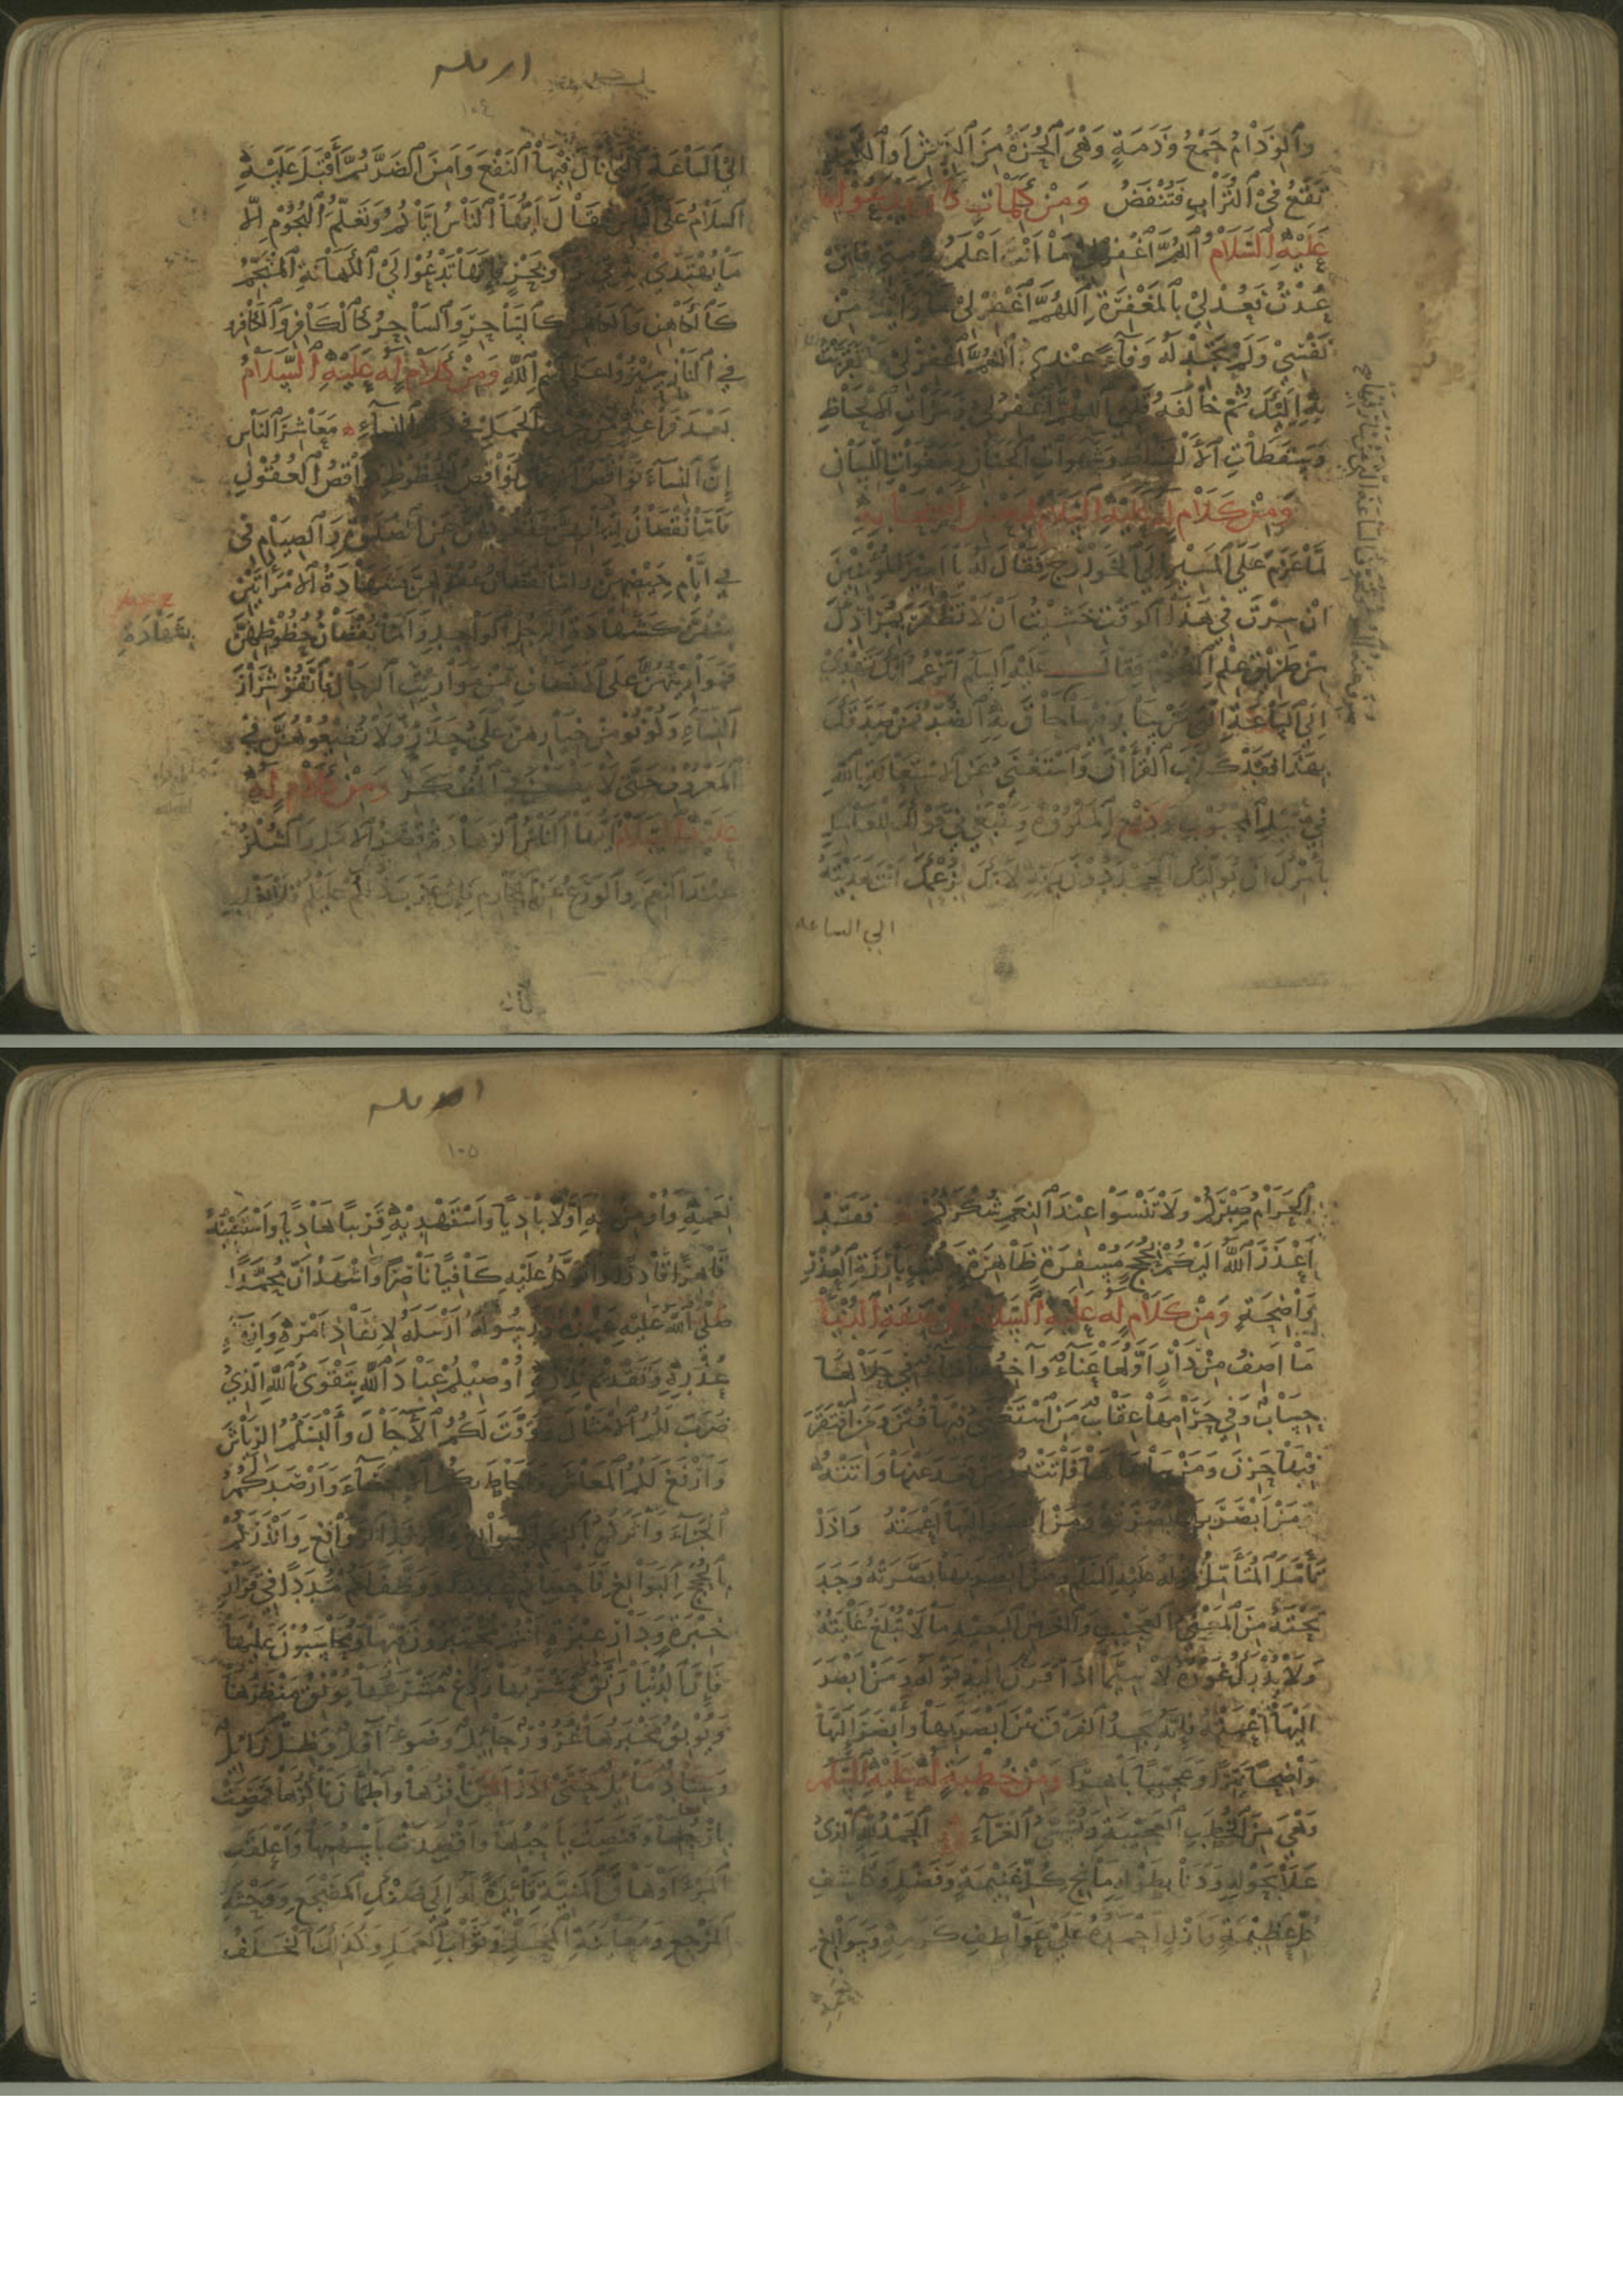 والوذام جمع وذمة وهي الحزة من الكرش او الكبد
تقع في التراب فتنفض ومن كلمات كان يدعو بها
عليه السلام اللهم اغفر لي ما انت اعلم به مني فان
عدت فعد لي بالمغفرة اللهم اغفر لي ما وايت من
نفسي ولم تجد له وفاء عندي اللهم اغفر لي ما تقربت
به اليك ثم خالفه قلبي اللهم اغفر لي رمزات الالحاظ
وسقطات الالفاظ وشهوات الجنان وهفوات اللسان
ومن كلام له عليه السلام لبعض اصحابه
لما عزم على المسير الى الخوارج فقال له يا امير المؤمنين
ان سرت في هذا الوقت خشيت ان لا تظفر بمرادك
من طريق علم النجوم فقال عليه السلم اتزعم انك تهدي
الى الساعة التي من سار فيها حاق به الضر فمن صدقك
بهذا فقد كذب القرآن واستغنى عن الاستعانة بالله
في نيل المحبوب ودفع المكروه وينبغي في قولك للعامل
بامرك ان يوليك الحمد دون ربه لانك بزعمك انت هديته
الى الساعة
الى الساعة التي نال فيها النفع وامن الضر ثم اقبل عليه
السلام على الناس فقال ايها الناس اياكم وتعلم النجوم الا
ما يهتدى به في بر او بحر فانها تدعوا لى الكهانة المنجم
كالكاهن والكاهن كالساحر والساحر كالكافر والكافر
في النار سيروا على اسم الله ومن كلام له عليه السلام
بعد فراغه من حرب الجمل في ذم النساء معاشر الناس
إن النساء نواقص الايمان نواقص الحظوظ نواقص العقول
فاما نقصان ايمانهن فقعودهن عن الصلوة والصيام في
في ايام حيضهن واما نقصان عقولهن فشهادة الامراتين
منهن كشهادة الرجل الواحد واما نقصان حظوظهن
فمواريثهن على الانصاف من مواريث الرجال فاتقوا شرار
النساء وكونوا من خيارهن على حذر ولا تطيعوهن في
المعروف حتى لا يطمعن في المنكر ومن كلام له
عليه السلام ايها الناس الزهادة قصر الامل والشكر
عند النعم والورع عن المحارم فان عزب ذلك عنكم فلا يغلب
الحرام صبركم ولا تنسوا عند النعم شكركم فقد
اعذر الله اليكم بحجج مسفرة ظاهرة وكتب بارزة العذر
واضحة ومن كلام له عليه السلام في صفة الدنيا
ما اصف من دار اولها عناء وآخرها فناء في حلالها
حساب وفي حرامها عقاب من استغنى فيها فتن ومن افتقر
فيها حزن ومن ساعاها فاتته ومن قعد عنها واتته
من ابصر بها بصرته ومن ابصر اليها اعمته واذا
تأمل المتأمل قوله عليه السلم ومن ابصر بها بصرته وجد
تحته من المعنى العجيب والغرض البعيد ما لا تبلغ غايته
ولا يدرك غوره لا سيما اذا قرن اليه قوله ومن ابصر
اليها اعمته فانه يجد الفرق بين ابصر بها وابصر اليها
واضحا نيرا وعجيبا باهرا ومن خطبة له عليه السلم
وهي من الخطب العجيبة وتسمى الغراء الحمد لله الذي
علا بحوله ودنا بطوله مانح كل غنيمة وفضل وكاشف
كل عظيمة وازل احمده على عواطف كرمه وسوابغ
نعمه واومن به اولا باديا واستهديه قريبا هاديا واستعينه
قاهرا قادرا واتوكل عليه كافيا ناصرا واشهد ان محمدا
صلى الله عليه عبده ورسوله ارسله لانفاذ امره وانهاء
عذره وتقديم نذره اوصيكم عباد الله بتقوى الله الذي
ضرب لكم الامثال ووقت لكم الآجال والبسكم الرياش
وارفغ لكم المعاش واحاط بكم الاحصاء وارصد لكم
الجزاء واثركم بالنعم السوابغ والرفد الروافغ وانذركم
بالحجج البوالغ فاحصاكم عددا ووظف لكم مددا في قرار
خبرة ودار عبرة انتم مختبرون فيها ومحاسبون عليها
فإن الدنيا رنق مشربها ردغ مشرعها يونق منظرها
ويوبق مخبرها غرور حائل وضوء آفل وظل زائل
وسناد مائل حتى اذا انس نافرها واطمأن ناكرها قمصت
بارجلها وقنصت باحبلها واقصدت باسهمها واعلقت
المرء اوهاق المنية قائدة له الى ضنك المضجع ووحشة
المرجع ومعاينة المحل وثواب العمل وكذلك الخلف